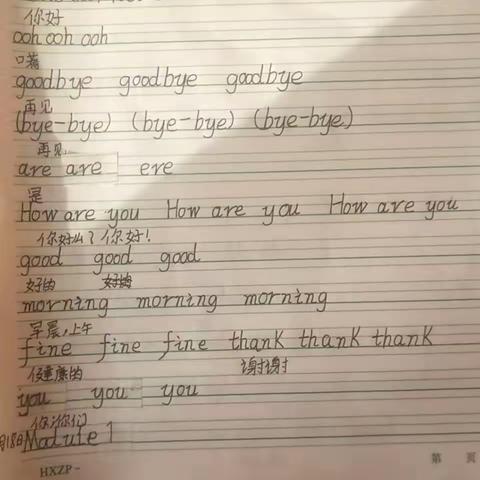 你好
ooh ooh ooh
goodbye goodbye goodbye
再见
(bye-bye) (bye-bye) (bye-bye)
再见
are are ere
是
How are you How are you How are you
你好么？你好！
good good good
好的 好的
morning morning morning
早晨,上午
fine fine fine thank thank thank
健康的 谢谢
you you you
你;你们
月18日 Madule 1
HXZP- 第 页